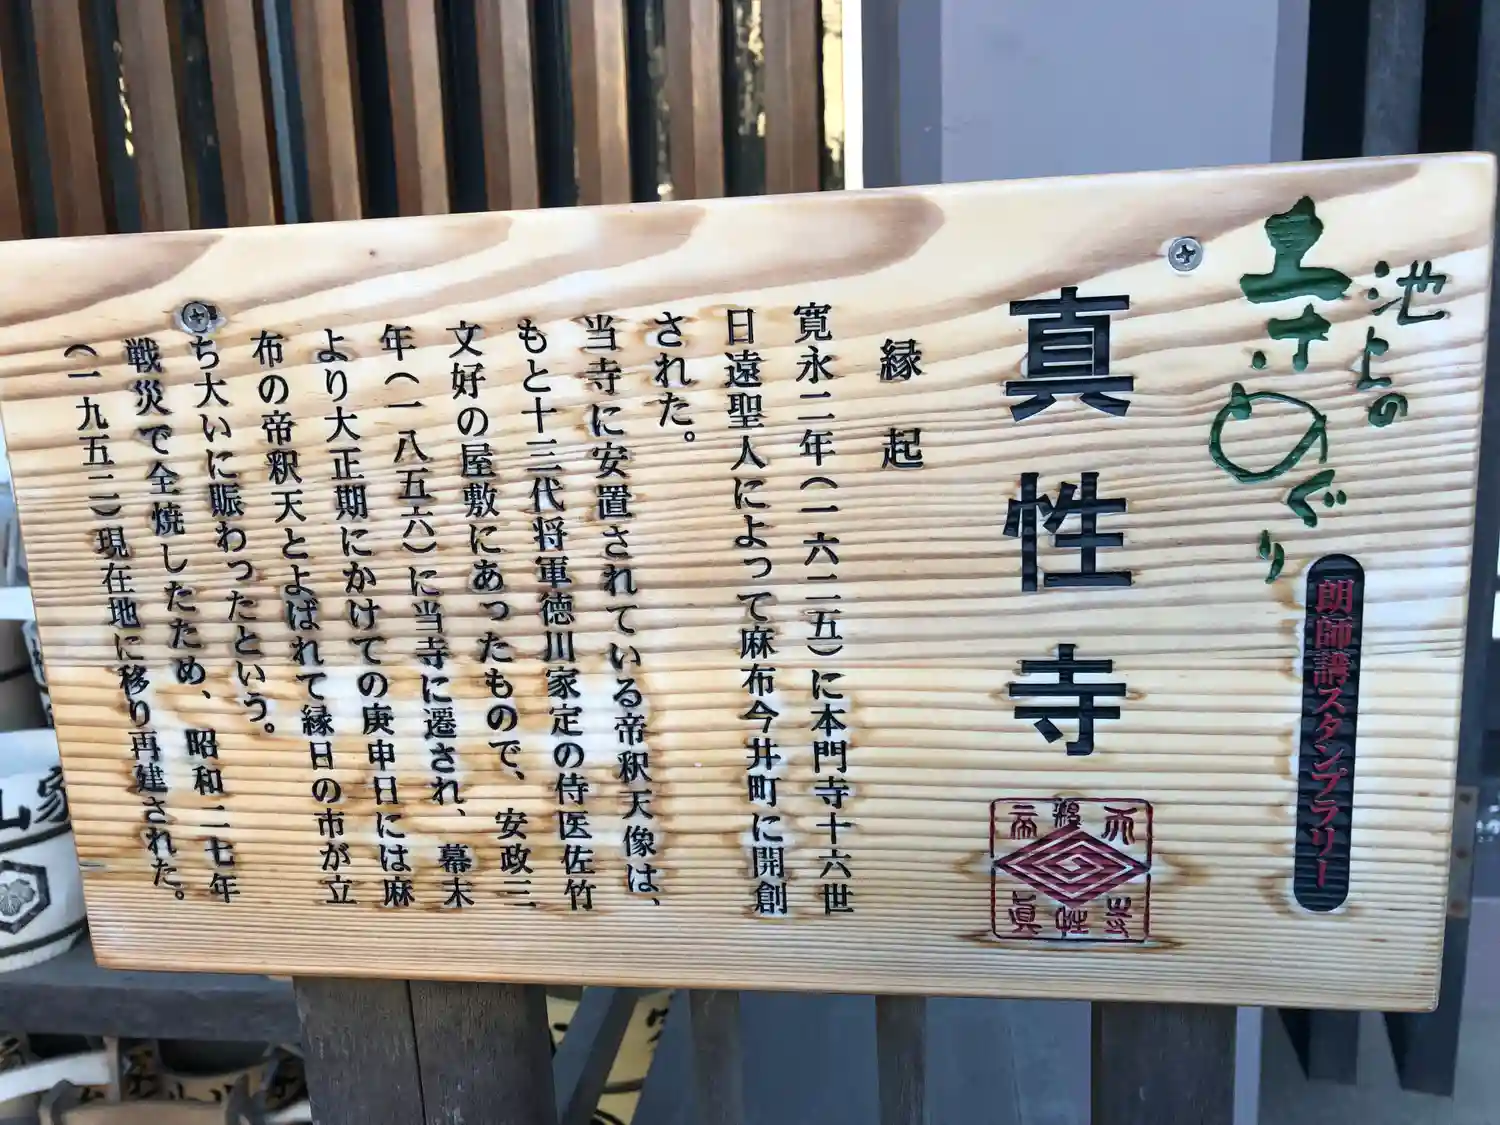 池上の
寺めぐり
朗師講スタンプラリー
真性寺
縁起
寛永二年(一六二五)に本門寺十六世
日遠聖人によって麻布今井町に開創
された。
当寺に安置されている帝釈天像は、
もと十三代将軍徳川家定の侍医佐竹
文好の屋敷にあったもので、安政三
年(一八五六)に当寺に遷され、幕末
より大正期にかけての庚申日には麻
布の帝釈天とよばれて縁日の市が立
ち大いに賑わったという。
戦災で全焼したため、昭和二七年
(一九五二)現在地に移り再建された。